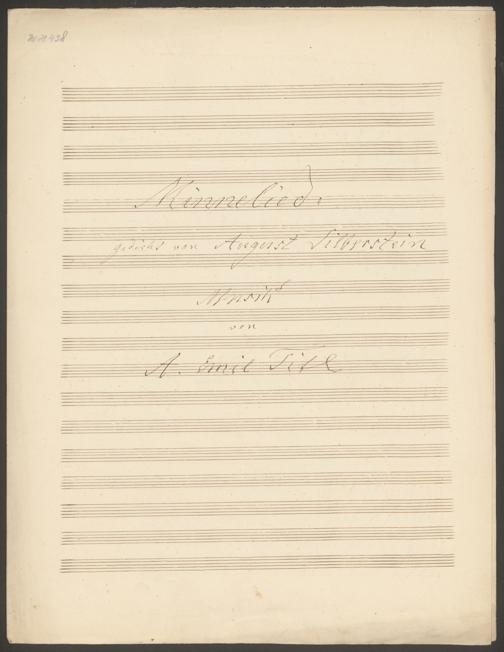 Minnelied.
gedicht von August Silberstein
Musik
von
A. Emil Titl